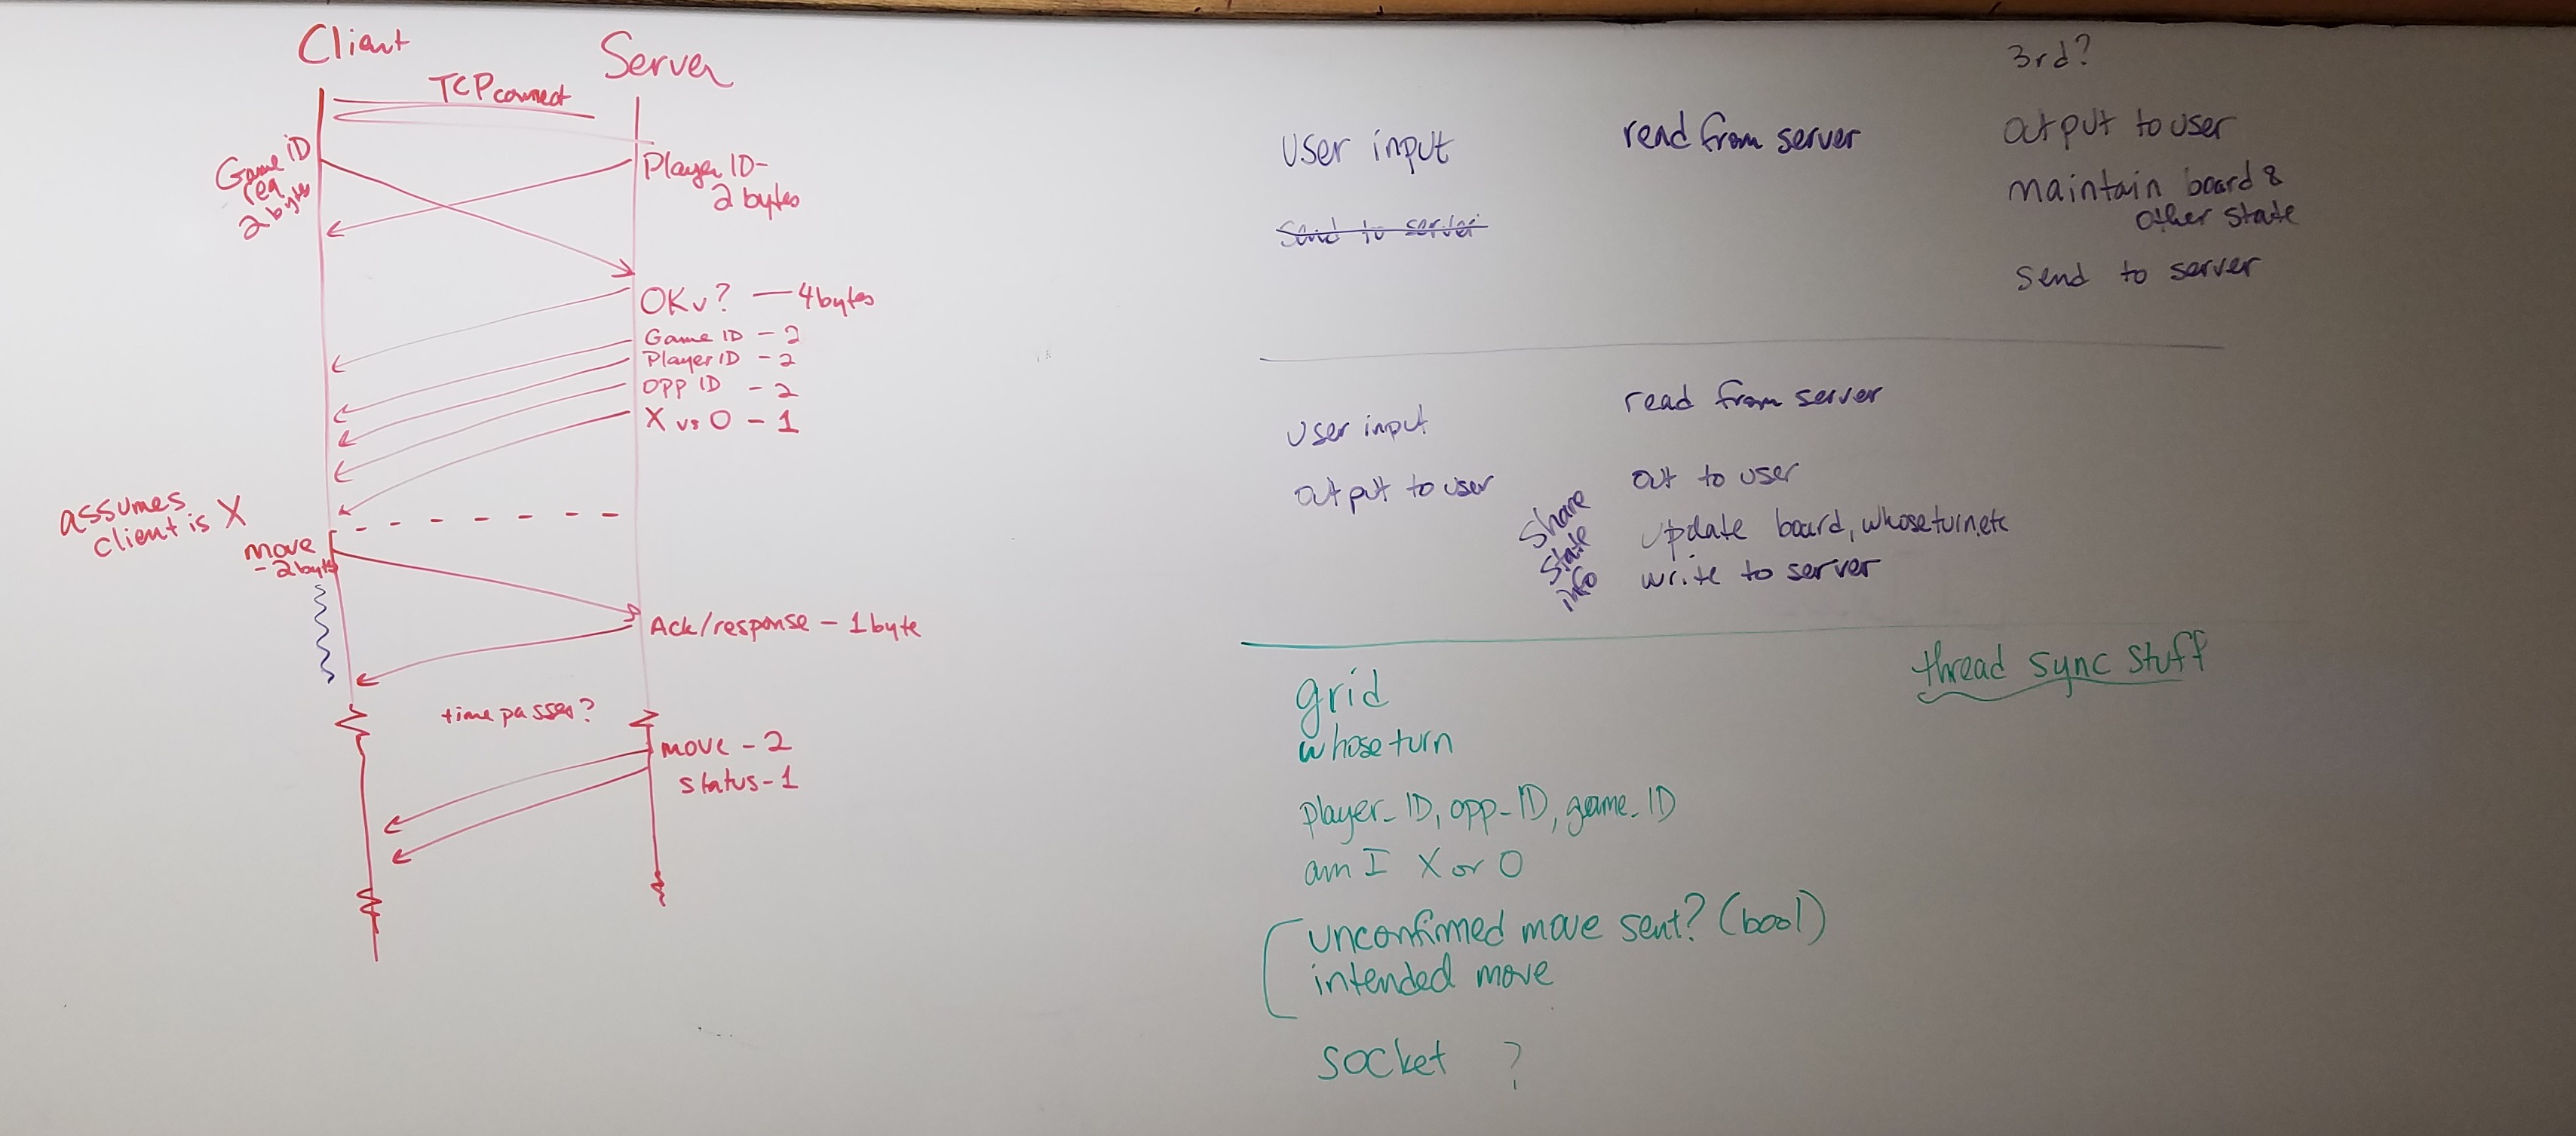 Client
Server
TCP connect
Game ID
req
2 bytes
Player ID-
2 bytes
OKv? — 4 bytes
Game ID - 2
Player ID - 2
OPP ID - 2
X vs O - 1
assumes
client is X
move
- 2 byts
Ack/response - 1 byte
time passes?
move - 2
status - 1
User input
send to server
read from server
3rd?
output to user
maintain board &
other state
send to server
User input
output to user
read from server
out to user
update board, whose turn, etc
write to server
Share
State
info
thread sync stuff
grid
whose turn
player_ID, opp_ID, game_ID
am I X or O
unconfirmed move sent? (bool)
intended move
socket ?